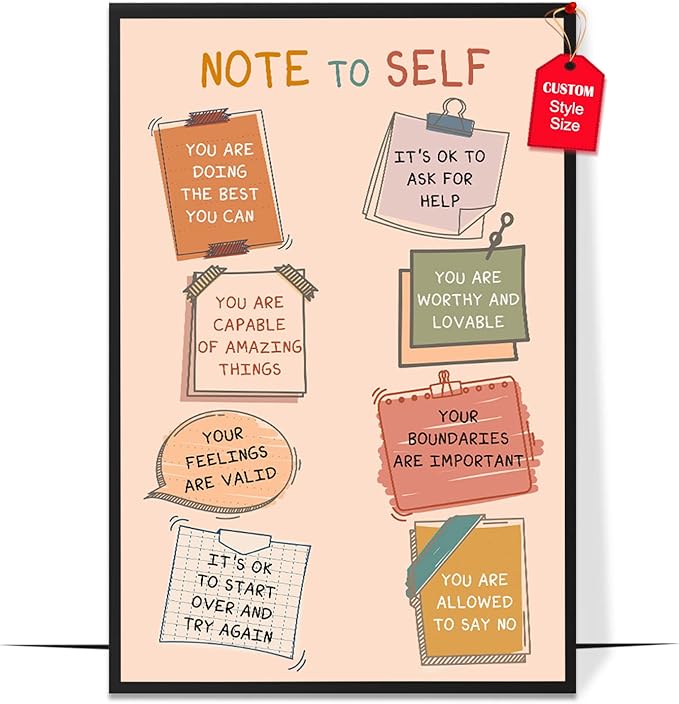 NOTE TO SELF
CUSTOM
Style
Size
YOU ARE
DOING
THE BEST
YOU CAN
IT'S OK TO
ASK FOR
HELP
YOU ARE
CAPABLE
OF AMAZING
THINGS
YOU ARE
WORTHY AND
LOVABLE
YOUR
FEELINGS
ARE VALID
YOUR
BOUNDARIES
ARE IMPORTANT
IT'S OK
TO START
OVER AND
TRY AGAIN
YOU ARE
ALLOWED
TO SAY NO